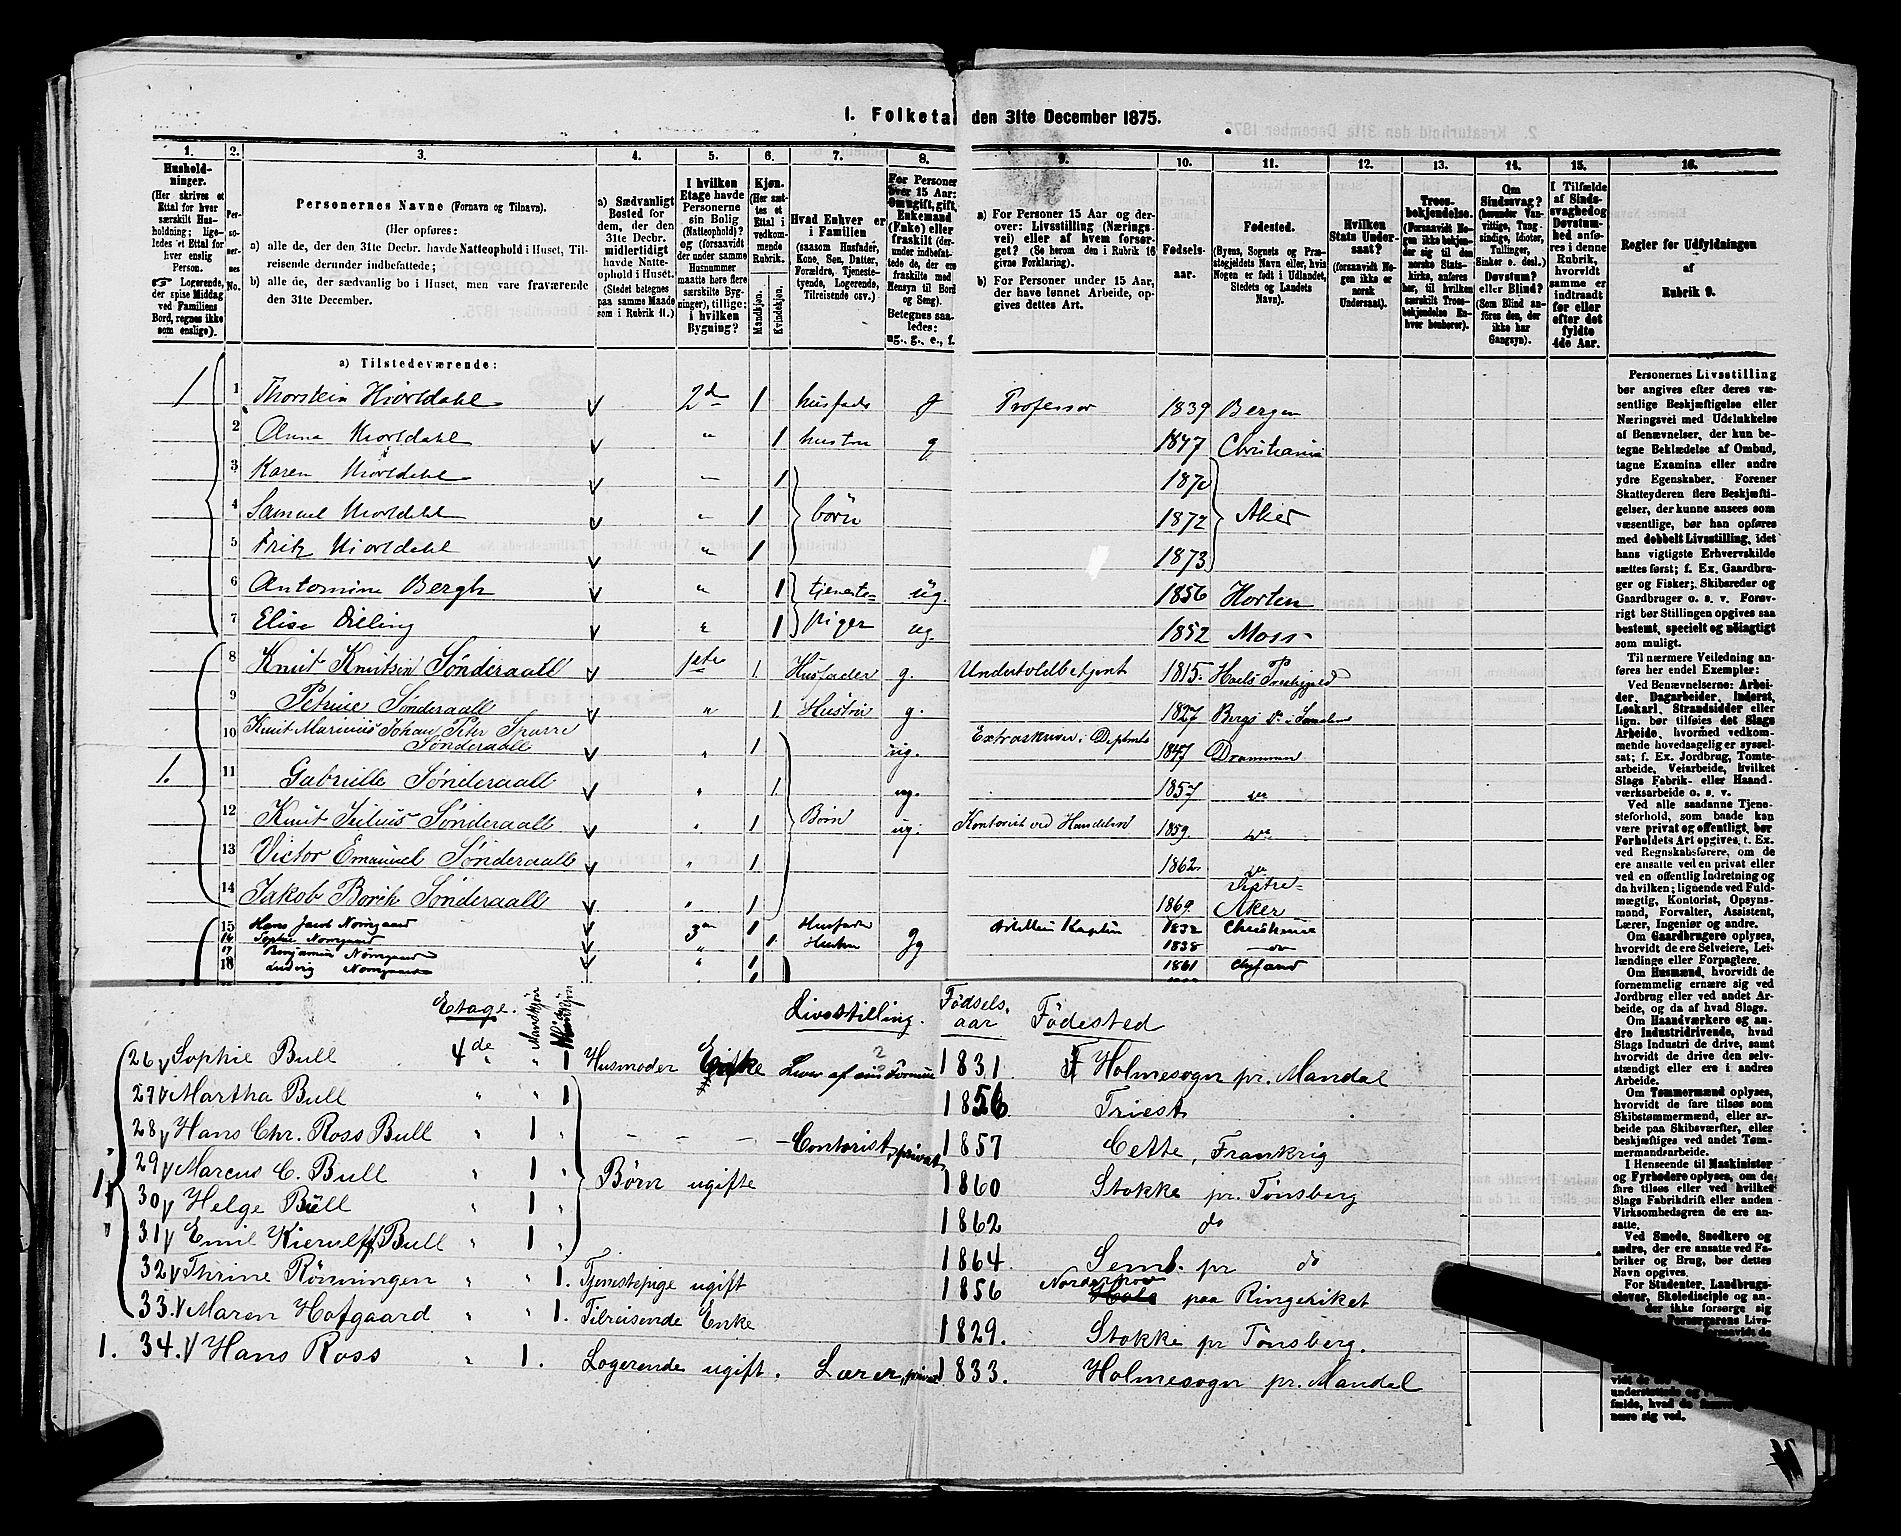 1. Folketal den 31te December 1875.
1. Husholdninger. (Her skrives et Ettal for hver særskilt Husholdning; ligeledes et Ettal for hver enslig Person. Logerende, der spise Middag ved Familiens Bord, regnes ikke som enslige).
2. Personernes No.
3. Personernes Navne (Fornavn og Tilnavn).
(Her opføres:
a) alle de, der den 31te Decbr. havde Natteophold i Huset, Tilreisende derunder indbefattede;
b) alle de, der sædvanlig bo i Huset, men vare fraværende den 31te December.
4. a) Sædvanligt Bosted for dem, der den 31te Decbr. midlertidigt havde Natteophold i Huset. (Stedet betegnes paa samme Maade som i Rubrik 11.)
5. I hvilken Etage havde Personerne sin Bolig (Natteophold)? og (forsaavidt der under samme Husnummer maatte høre flere særskilte Bygninger), tillige: i hvilken Bygning?
6. Kjøn. (Her sættes et Ettal i vedkommende Rubrik. Mandkjøn. Kvindekjøn.
7. Hvad Enhver er i Familien (saasom Husfader, Kone, Søn, Datter, Forældre, Tjenestetyende, Logerende, Tilreisende osv.)
8. For Personer over 15 Aar: Om ugift, gift, Enkemand (Enke) eller fraskilt (derunder indbefattede de, der ere fraskilte med Hensyn til Bord og Seng). Betegnes saaledes: ug., g., e., f.
9. a) For Personer 15 Aar og derover: Livsstilling (Næringsvei) eller af hvem forsørget? (Se herom den i Rubrik 16 givne Forklaring).
b) For Personer under 15 Aar, der have lønnet Arbeide, opgives dettes Art.
10. Fødselsaar.
11. Fødested. (Byens, Sognets og Præstegjeldets Navn eller, hvis Nogen er født i Udlandet, Stedets og Landets Navn).
12. Hvilken Stats Undersaat? (forsaavidt Nogen ikke er norsk Undersaat).
13. Troesbekjendelse. (Forsaavidt Nogen ikke bekjender sig til den norske Statskirke, anføres her, til hvilken særskilt Troesbekjendelse Enhver henhører).
14. Om Sindssvag? (herunder Vanvittige, Tungsindige, Idioter, Tullinger, Sinker o. desl.) Døvstum? eller Blind? (Som Blind anføres den, der ikke har Gangsyn).
15. I Tilfælde af Sindssvaghed og Døvstumhed anføres i denne Rubrik, hvorvidt samme er indtraadt før eller efter det fyldte 4de Aar.
16. Regler for Udfyldningen af Rubrik 9.
a) Tilstedeværende:
1 1 Thorstein Hiortdahl 2d 1 husfader g Professor 1839 Bergen
2 Anna Hiortdahl " 1 hustru g 1847 Christiania
3 Karen Hiortdahl " 1 1870
4 Samuel Hiortdahl " 1 børn 1872 Aker
5 Fritz Hiortdahl " 1 1873
6 Antomine Bergh " 1 tjeneste- ug. 1856 Horten
7 Elise Dilling " 1 piger ug. 1852 Moss
8 Knut Knutsen Sønderaall 1ste 1. Husfader g. Undertoldbetjent 1815.
9 Petrine Sønderaall " 1. Hustru g. 1827
10 Knut Marinius Johan Peter Sparre
Sønderaall " 1 ug. 1847 Drammen
1. 11 Gabrielle Sønderaall " 1. ug. 1857 do
12 Knut Julius Sønderaall " 1 Børn ug. Kontorist ved Handelen 1859. do
13 Victor Emanuel Sønderaall " 1 1862. do
14 Jakob Borik Sønderaall " 1 1869. Vestre Aker
15 Hans Jacob Nørregaard 3die 1 Husfader g Artilleri Kaptein 1832 Christiania
16 Sophie Nørregaard " 1. Hustru g 1838 do
17 Benjamin Nørregaard
18 Ludvig Nørregaard 1 1861
Etage. Mandkjøn Kvindekjøn Livsstilling. Fødsels.aar Fødested
26 Sophie Bull 4de " 1 Husmoder Enke Lever af sin Formue 1831 Holmesogn pr. Mandal
27 Martha Bull " " 1 1856 Triest
28 Hans Chr. Ross Bull " 1 " - - - Contorist, privat 1857 Cette, Frankrig
29 Marcus C. Bull " 1 " Børn ugifte 1860 Stokke pr. Tønsberg
1 30 Helge Bull " 1 " 1862 do
31 Emil Kierulff Bull " 1 " 1864 Semb. pr do
32 Thrine Rönningen " " 1. Tjenestepige ugift 1856 Norderhov paa Ringeriket
33. Maren Hofgaard " " 1. Tilreisende Enke 1829. Stokke pr Tønsberg.
1. 34. Hans Ross " 1. Logerende ugift. Lærer, privat 1833. Holmesogn pr. Mandal
Personernes Livsstilling
bør angives efter deres væ-
sentlige Beskjæftigelse eller
Næringsvei med Udelukkelse
af Benævnelser, der kun be-
tegne Beklædelse af Ombud,
tagne Examina eller andre
ydre Egenskaber. Forener
Skatteyderen flere Beskjæfti-
gelser, der kunne ansees som
væsentlige, bør han opføres
med dobbelt Livsstilling, idet
hans vigtigste Erhvervskilde
sættes først; f. Ex. Gaardbru-
ger og Fisker; Skibsreder og
Gaardbruger o. s. v. Forøv-
rigt bør Stillingen opgives saa
bestemt, specielt og nøiagtigt
som muligt.
Til nærmere Veiledning an-
føres her endel Exempler:
Ved Benævnelserne: Arbei-
der, Dagarbeider, Inderst,
Løskarl, Strandsidder eller
lign. bør tilføies det Slags
Arbeide, hvormed vedkom-
mende hovedsagelig er syssel-
sat; f. Ex. Jordbrug, Tomte-
arbeide, Veiarbeide, hvilket
Slags Fabrik- eller Haand-
værksarbeide o. s. v.
Ved alle saadanne Tjene-
steforhold, som baade kan
være privat og offentligt, bør
Forholdets Art opgives, t. Ex.
ved Regnskabsførere, om de
ere ansatte ved en privat eller
ved en offentlig Indretning og
da hvilken; lignende ved Fuld-
mægtig, Kontorist, Opsyns-
mand, Forvalter, Assistent,
Lærer, Ingeniør og andre.
Om Gaardbrugere oplyses,
hvorvidt de ere Selveiere, Lei-
lændinge eller Forpagtere.
Om Husmænd, hvorvidt de
fornemmelig ernære sig ved
Jordbrug eller ved andet Ar-
beide, og da af hvad Slags.
Om Haandværkere og an-
dre Industridrivende, hvad
Slags Industri de drive, samt
hvorvidt de drive den selv-
stændigt eller ere i andres
Arbeide.
Om Tømmermænd oplyses,
hvorvidt de fare tilsøs som
Skibstømmermænd, eller ar-
beide paa Skibsværfter, eller
beskjæftiges ved andet Tøm-
mermandsarbeide.
I Henseende til Maskinister
og Fyrbødere oplyses, om de
fare tilsøs eller ved hvilket
Slags Fabrikdrift eller anden
Virksomhedsgren de ere an-
satte.
Ved Smede, Snedkere og
andre, der ere ansatte ved Fa-
briker og Brug, bør dettes
Navn opgives.
For Studenter, Landbrugs-
elever, Skoledisciple og an-
dre, der ikke forsørge sig